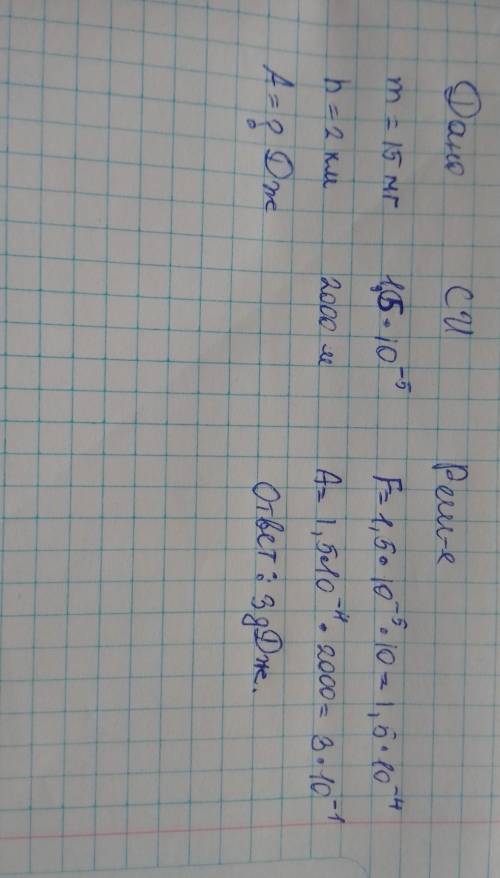 Дано
m = 15 мг
h = 2 км
A = ? Дж
СИ
1,5 • 10⁻⁵
2000 м
Реш-е
F = 1,5 • 10⁻⁵ • 10 = 1,5 • 10⁻⁴
A = 1,5•10⁻⁴ • 2000 = 3 • 10⁻¹
Ответ : 3 дДж.